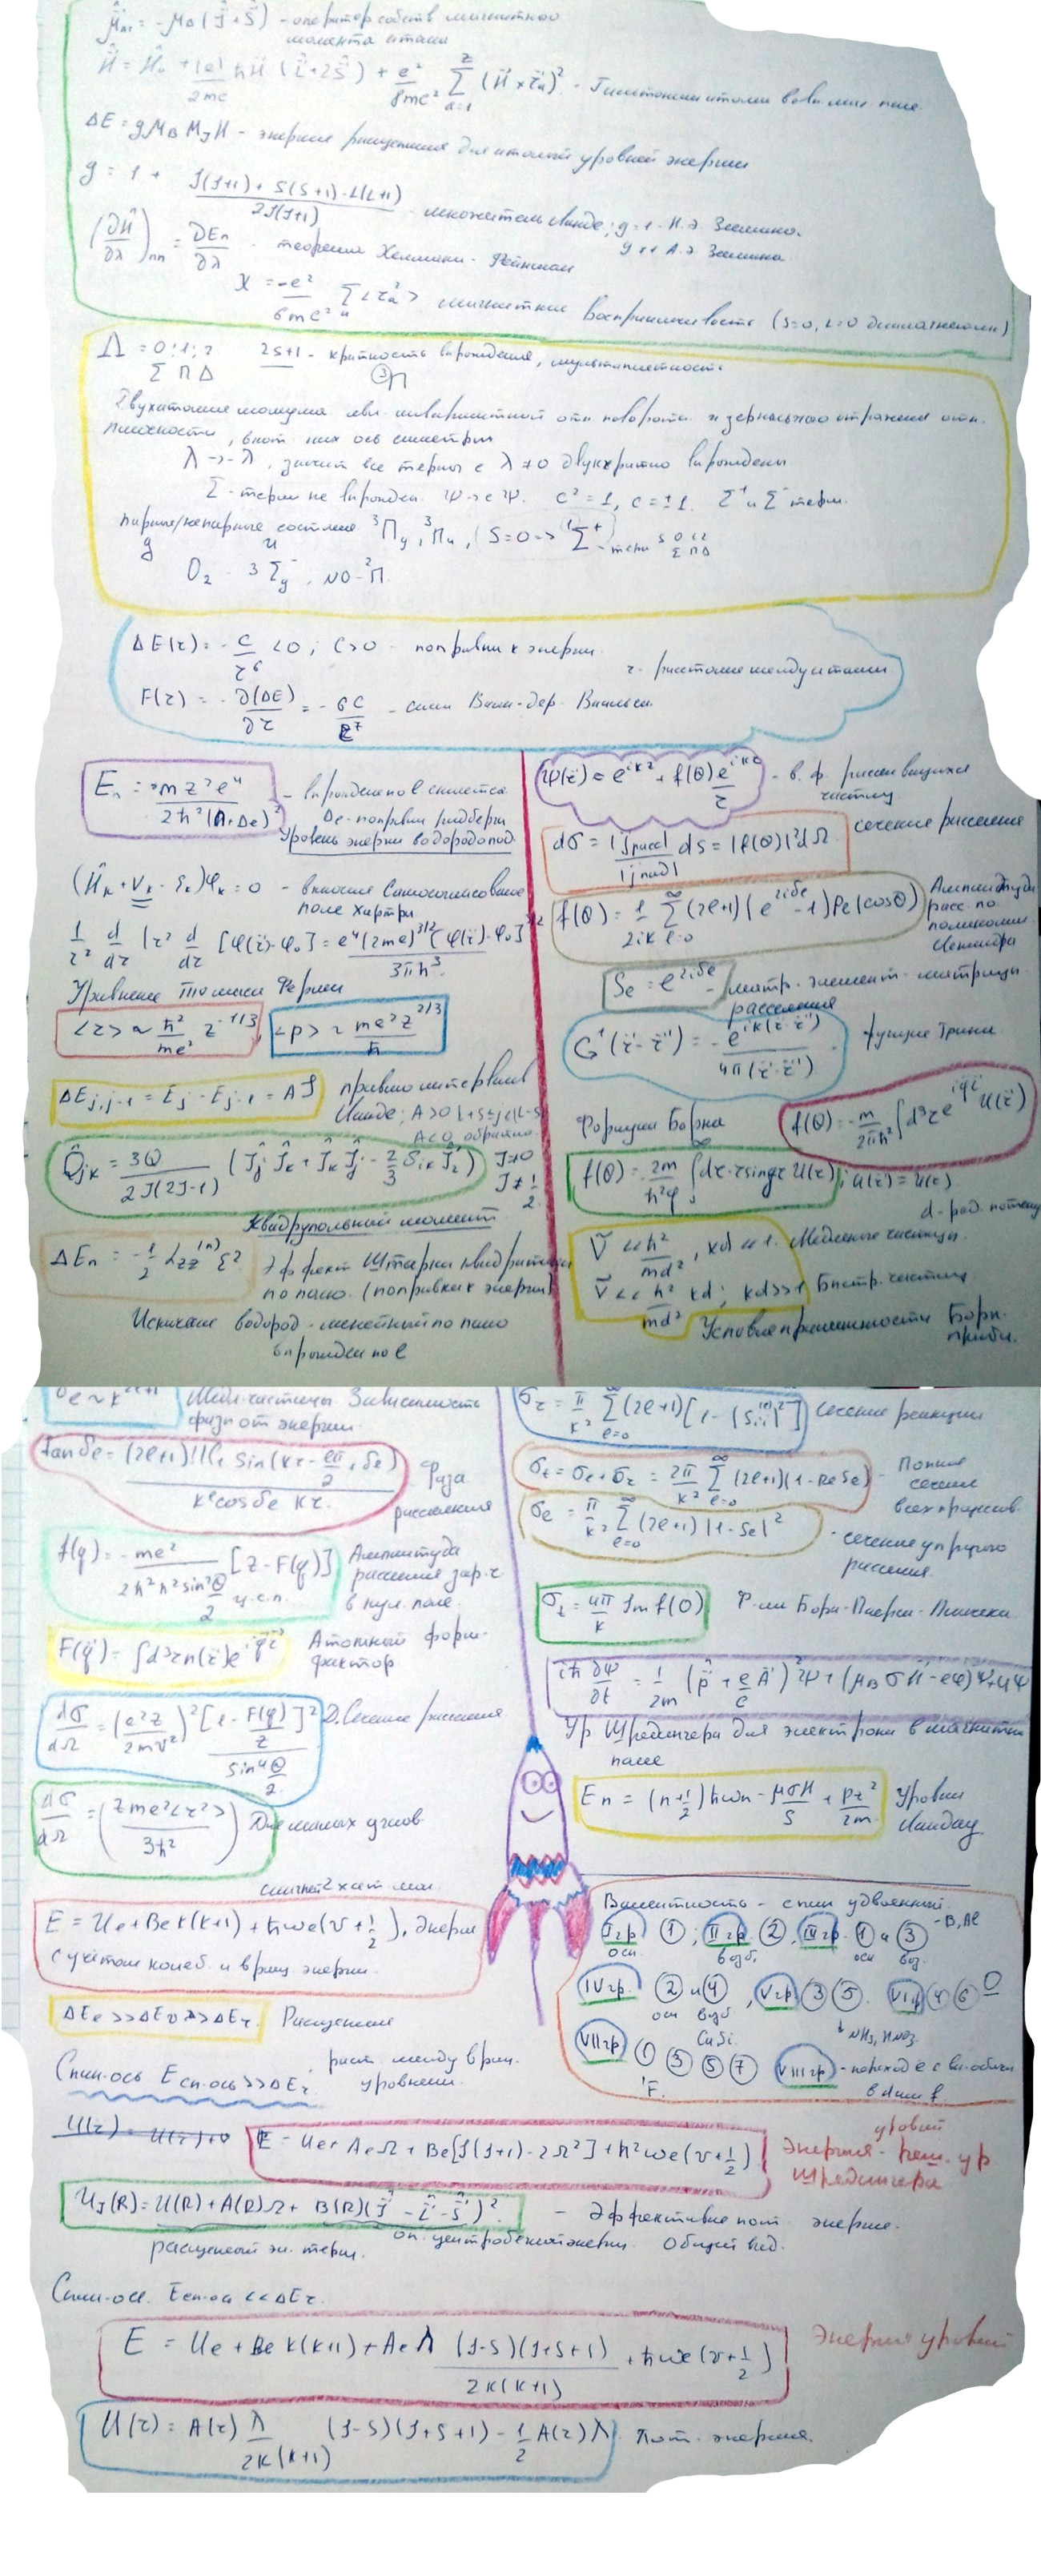 μ̂ат = -μB(Ĵ+Ŝ) - оператор собств магнитного
момента атома
Ĥ = Ĥ₀ + |e|/2mc ħH(L̂+2Ŝ) + e²/8mc² Σ(a=1..Z) (H×rₐ)² - Гамильтониан атома во вн. маг. поле.
ΔE = gμB MJ H - энергия расщепления для атомный уровней энергии
g = 1 + (J(J+1)+S(S+1)-L(L+1))/2J(J+1) - множитель Ланде; g=1 - Н.э Зеемана.
g≠1 А.э Зеемана
(∂Ĥ/∂λ)nn = ∂En/∂λ - теорема Хеллмана - Фейнмана
χ = -e²/6mc² Σ<rₐ²> магнитная восприимчивость (S=0, L=0 диамагнетики)
Λ = 0; 1; 2 2S+1 - кратность вырождения, мультиплетность
Σ Π Δ ³Π
Двухатомные молекула явл. инвариантной отн поворота и зеркального отражения отн.
плоскости, вкот. них ось симетрии
λ -> -λ, значит все термы с λ≠0 двукратно вырождены.
Σ-термы не вырожден. Ψ->cΨ. c²=1, c=±1. Σ⁺ и Σ⁻ термы.
парные/непарные состояния ³Πg, ³Πu, (S=0 -> ¹Σ⁺ - терм
g u
O₂ - ³Σg⁻, NO - ²Π.
ΔE(r) = -C/r⁶ <0; C>0 - поправки к энергии.
r - расстояние между атомами.
F(r) = -∂(ΔE)/∂r = -6C/R⁷ - силы Ван-дер-Ваальса.
En = -mz²e⁴/2ħ²(n+Δe)² - вырождение по l снимается
Δe - поправки ридберги
Уровень энергии водородопод.
(Ĥk+Vk-εk)φk=0 - включение Самосогласованое
поле Хартри
1/r² d/dr (r² d/dr [φ(r)-φ₀] = e⁴(2me)^3/2 [φ(r)-φ₀]^3/2 / 3πħ³
Уравнение Томаса Ферми
<r> ~ ħ²/me² z^-1/3, <p> ~ me²z^2/3/ħ
ΔEj,j-1 = Ej - Ej-1 = AJ правило интервалов
Ланде; A>0 L+S≥j≥|L-S|
A<0, обратно
Q̂jk = 3Q/2J(2J-1) (ĴjĴk+ĴkĴj - 2/3 δik Ĵ²) J≠0
J≠1/2
Квадрупольный момент
ΔEn = -1/2 αzz⁽ⁿ⁾ε² Эффект Штарка квадратичн
по полю. (поправки к энергии)
Исключение водород - линейный по полю
вырожден по l
Ψ(r) = e^ikz + f(θ)e^ikr/r - в.ф. рассеивающихся
частиц
dσ = |jрасс|/|jпад| dS = |f(θ)|²dΩ сечение рассеяния
f(θ) = 1/2ik Σ(l=0..∞) (2l+1)(e^2iδe - 1)Pe(cosθ) Амплитуда
расс. по
полиномам
Лежандра
Se = e^2iδe - матр. элемент - матрицы
рассеяния
G⁺(r-r') = -e^ik(r-r')/4π(r-r') - функция Грина
Формулы Борна f(θ) = -m/2πħ² ∫d³r e^iqr U(r)
f(θ) = -2m/ħ²q ∫dr·r sinqr U(r); U(r)=U(r)
d - рад. потенц
V << ħ²/md², kd<<1. Медленные частицы.
V << ħ²/md² kd; kd>>1 Быстр. частицы
Условие применимости Борн.
прибл.
σe ~ k Медл. частицы Зависимость
фазы от энергии.
tanδe = (2l+1)!!(, sin(kr - lπ/2 + δe)/k^e cosδe kr Фаза
рассеяния
f(q) = -me²/2ħ²k²sin²θ/2 [Z-F(q)] Амплитуда
рассеяния зар.ч.
ц.с.п. в кул. поле.
F(q) = ∫d³r n(r)e^iqr Атомный форм-
фактор
dσ/dΩ = (e²z/2mv²)² [1-F(q)/z]²/sin⁴θ/2 Д. Сечение рассеяния
dσ/dΩ = (zme²<r²>/3ħ²) Для малых углов
E = Ue+Be k(k+1)+ħωe(v+1/2), Энерг
с учётом колеб. и вращ энергии.
ΔEe>>ΔEv>>ΔEr. Расщепление
расст. между вращ.
Спин-ось Eсп-ось>>ΔEr уровнями.
σr = π/k² Σ(l=0..∞) (2l+1)[1-|Sii|²] Сечение реакции
σt = σe+σr = 2π/k² Σ(l=0..∞) (2l+1)(1-ReSe) - Полное
сечение
всех процессов.
σe = π/k² Σ(l=0..∞) (2l+1)|1-Se|² - сечение упругого
рассеяния.
σt = 4π/k Jmf(0) Ф-ла Бора-Паерлса-Плачека
iħ∂Ψ/∂t = 1/2m (p̂+e/c A)²Ψ+(μBσH-eφ)Ψ+UΨ
Ур. Шредингера для электрона в магнитном
поле
En = (n+1/2)ħωн - μσH/S + pz²/2m Уровни
Ландау
Валентность - спин удвоенный.
I гр 1; II гр 2, III гр. 1 и 3 - B, Al
осн. возб. осн воз.
IV гр 2 и 4, V гр 3 5. VI гр 4 6 0
осн возб
CuSi. NH₃, HNO₃.
VII гр 1 3 5 7 VIII гр - переход e с вн. оболочки
'F. в d или f.
U(r) = U(r)+0
E = Ue+AeΩ+Be[J(J+1)-2Ω²]+ħ²ωe(v+1/2) уровней
Энергия - реш. ур.
Шредингера
UJ(R) = U(R)+A(R)Ω+B(R)(Ĵ-L̂-Ŝ)². - Эффективные пот энергия.
расщеплений эл. терм. оп. центробежной энергии. Общий вид.
Спин-ось. Eсп-ос<<ΔEr.
E = Ue+Be k(k+1)+AeΛ (J-S)(J+S+1)/2k(k+1) + ħωe(v+1/2) Энергия уровней
U(r) = A(r) Λ/2k(k+1) (J-S)(J+S+1) - 1/2 A(r)Λ Пот. энергия.